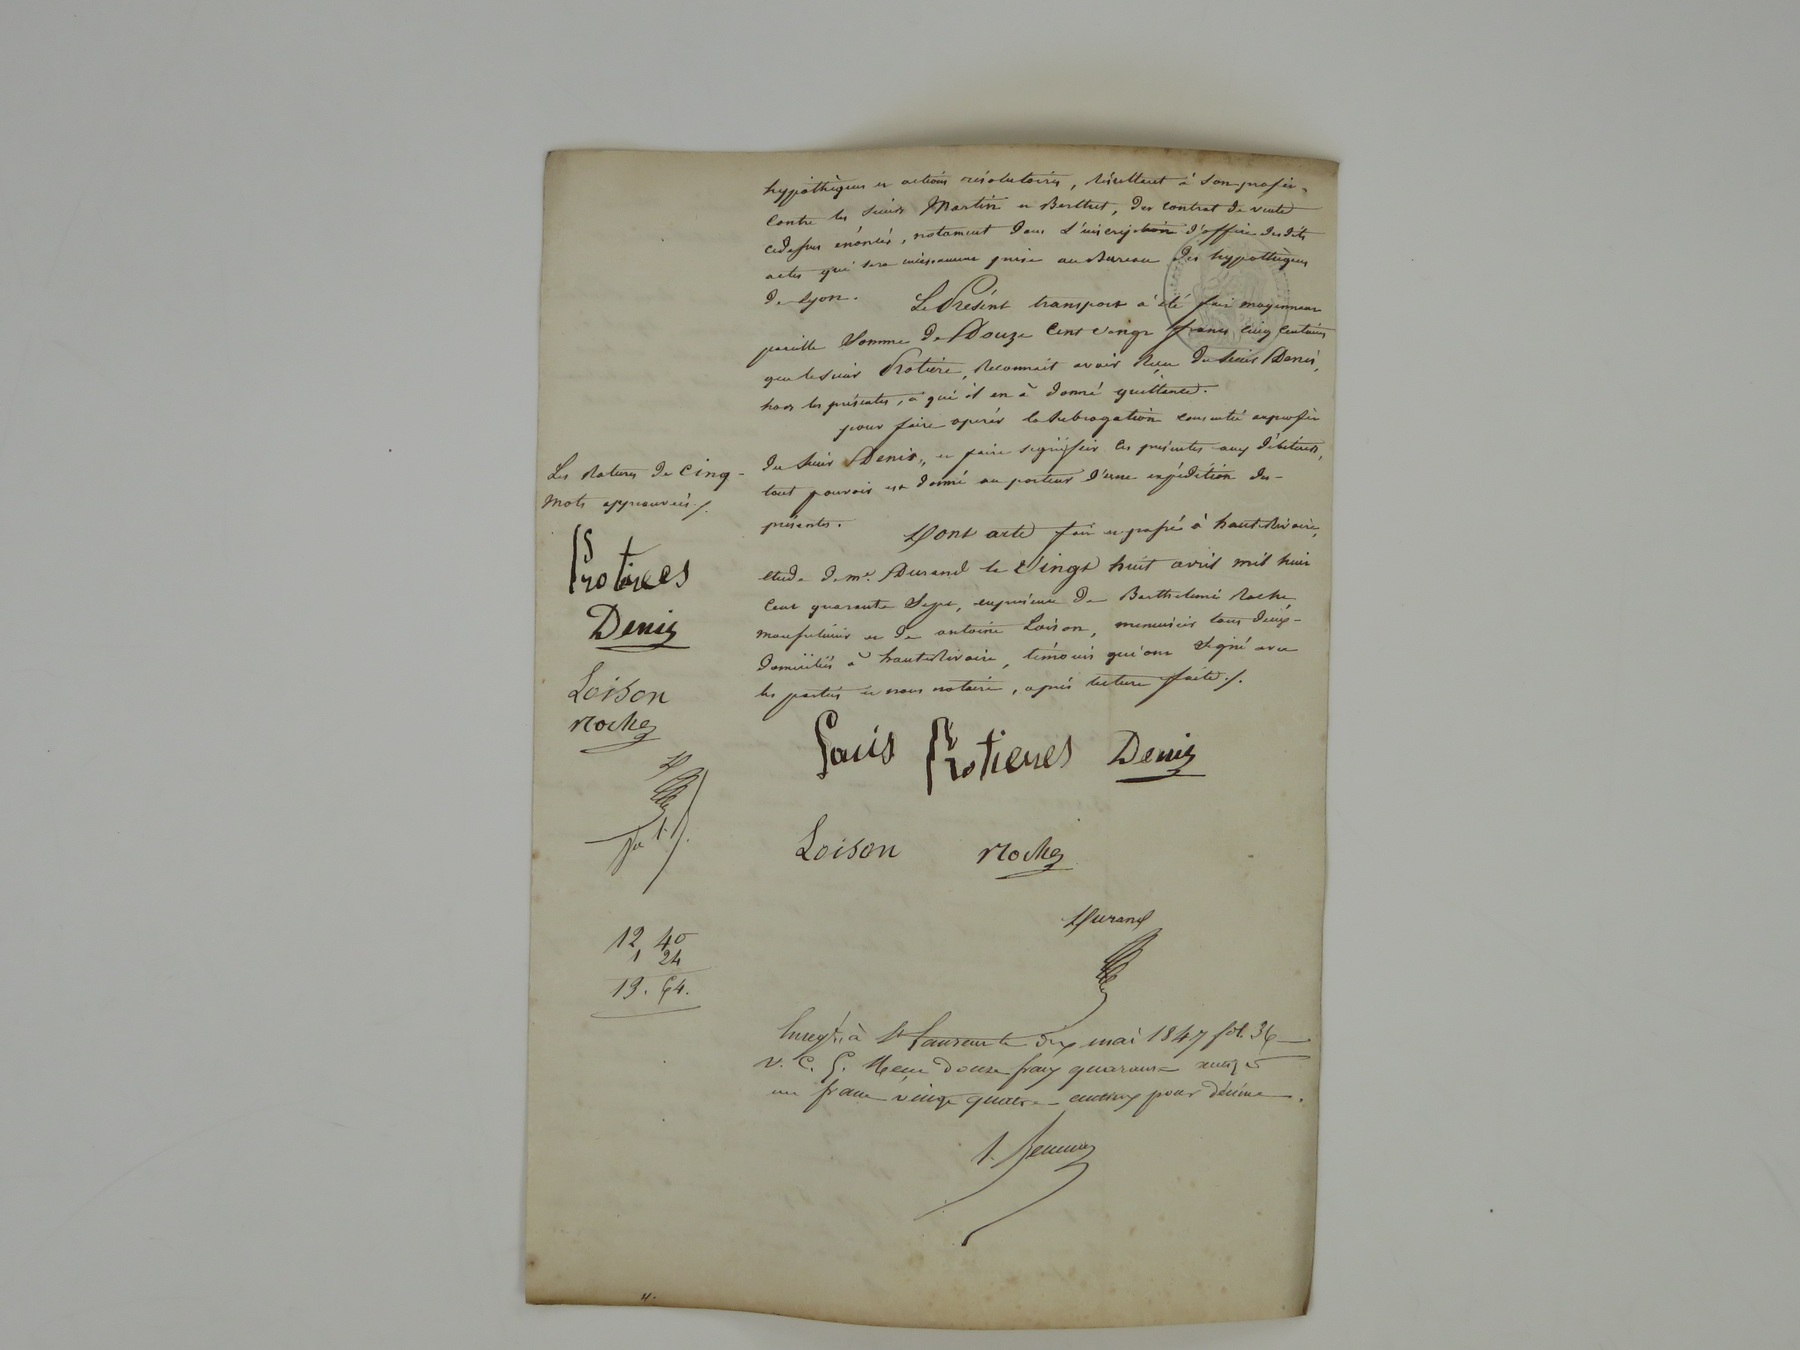 hypothèques et actions résolutoires, résultant à son profit
contre les sieurs Martin et Berthet, des contrat de vente
cidessus énoncés, notament dans l'inscription d'office desdits
actes qui sera incessamment prise au Bureau des hypothèques
de Lyon. Le Présent transport à été fait moyennant
pareille Somme de Douze Cent vingt francs cinq centimes
que le sieur Protière, Reconnait avoir Reçu du sieur Denis,
hors les présentes, à qui il en à donné quittance.
pour faire opérer la Subrogation consentie au profit
du sieur Denis, et faire signifier les présentes aux débiteurs,
tout pouvoir est donné au porteur d'une expédition des
présentes. Dont acte fait et passé à hauteRivoire,
étude de me. Durand le Vingt huit avril mil huit
Cent quarante Sept, en présence de Barthelemi Roche
et de antoine Loison, menuisier tous deux
domiciliés à hauteRivoire, témoins qui ont Signé avec
les parties et nous notaire, après lecture faite ./.
Les Ratures de Cinq
mots approuvées ./.
Protieres
Denis
Loison
Roche
Louis Protieres Denis
Loison Roche
Durand
12 40
1 24
13. 64.
Enregtré à St Laurent le dix mai 1847 fol. 36
v. C. 5. Reçu douze francs quarante centimes
un franc vingt quatre centimes pour décime.